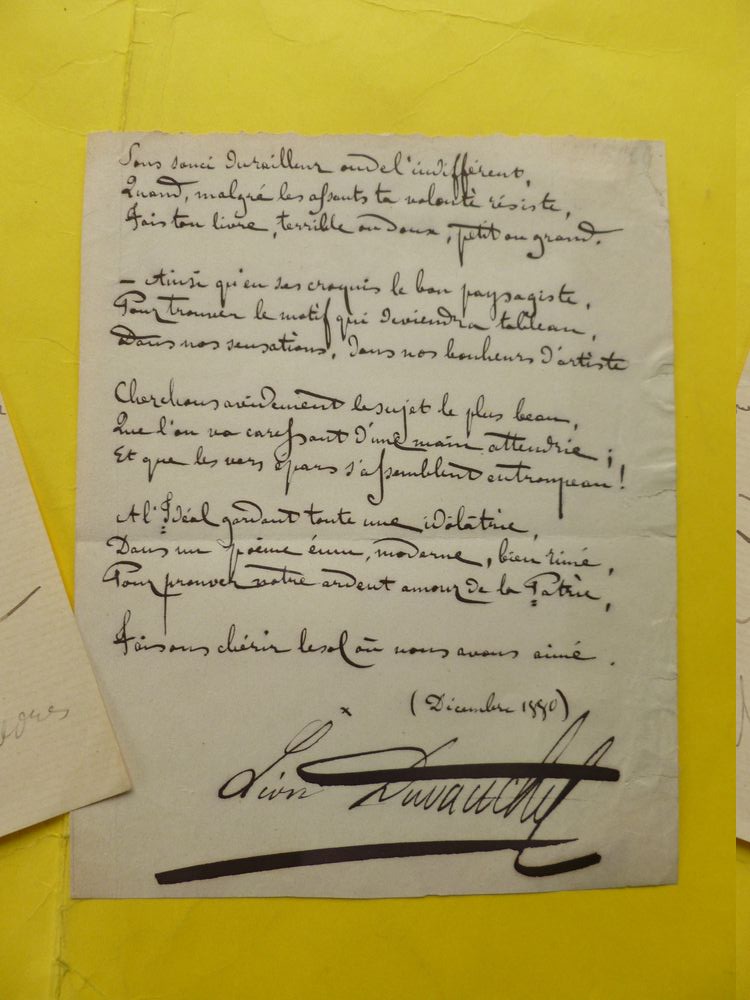 Sans souci du railleur ou de l'indifférent,
Quand, malgré les assauts ta volonté résiste,
Fais ton livre, terrible ou doux, petit ou grand.
— Ainsi qu'en ses croquis le bon paysagiste,
Pour trouver le motif qui deviendra tableau,
Dans nos sensations, dans nos bonheurs d'artiste
Cherchons avidement le sujet le plus beau,
Que l'on va caressant d'une main attendrie ;
Et que les vers épars s'assemblent en troupeau !
A l'Idéal gardant toute une idolâtrie,
Dans un poëme ému, moderne, bien rimé,
Pour prouver notre ardent amour de la Patrie,
Faisons chérir le sol où nous avons aimé.
(Décembre 1880)
x
Léon Duvauchel